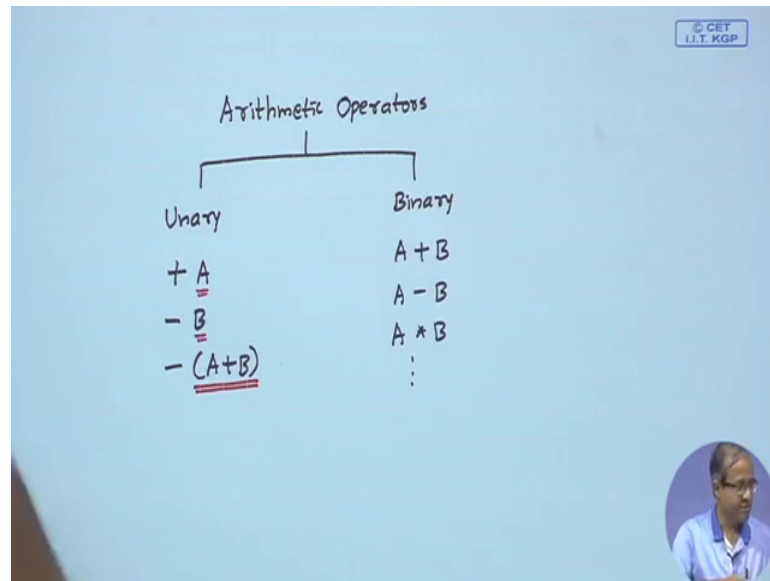 © CET
I.I.T. KGP
Arithmetic Operators
Unary
Binary
+ A
A + B
- B
A - B
- (A+B)
A * B
⋮